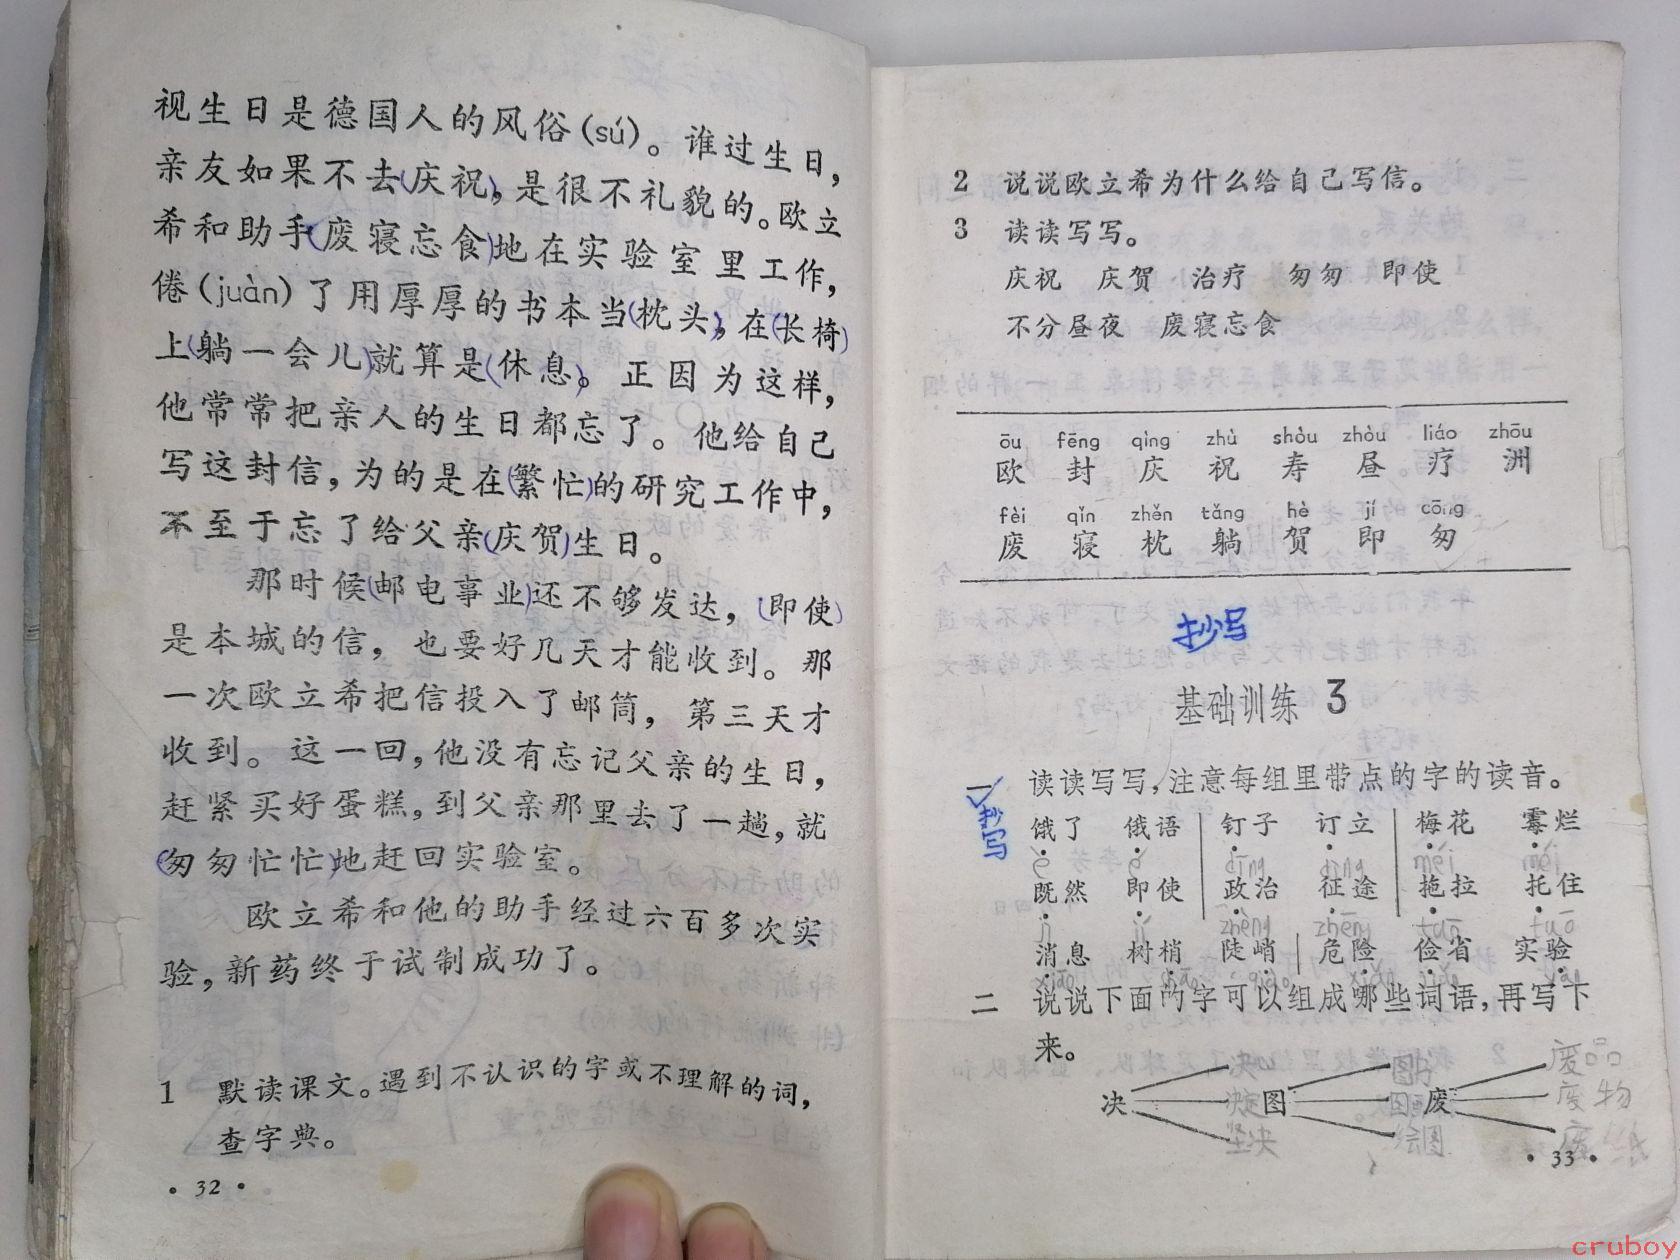 视生日是德国人的风俗(sú)。谁过生日，
亲友如果不去(庆祝)，是很不礼貌的。欧立
希和助手(废寝忘食)地在实验室里工作，
倦(juàn)了用厚厚的书本当(枕头)，在(长椅)
上(躺一会儿)就算是(休息)。正因为这样，
他常常把亲人的生日都忘了。他给自己
写这封信，为的是在(繁忙)的研究工作中，
不至于忘了给父亲(庆贺)生日。
那时候(邮电事业)还不够发达，(即使)
是本城的信，也要好几天才能收到。那
一次欧立希把信投入了邮筒，第三天才
收到。这一回，他没有忘记父亲的生日，
赶紧买好蛋糕，到父亲那里去了一趟，就
(匆匆忙忙)地赶回实验室。
欧立希和他的助手经过六百多次实
验，新药终于试制成功了。
1 默读课文。遇到不认识的字或不理解的词，
查字典。
·32·
2 说说欧立希为什么给自己写信。
3 读读写写。
庆祝 庆贺 治疗 匆匆 即使
不分昼夜 废寝忘食
ōu fēng qìng zhù shòu zhòu liáo zhōu
欧 封 庆 祝 寿 昼 疗 洲
fèi qǐn zhěn tǎng hè jí cōng
废 寝 枕 躺 贺 即 匆
抄写
基础训练 3
一 读读写写，注意每组里带点的字的读音。
抄写
饿了 俄语 钉子 订立 梅花 霉烂
è é dīng dìng méi méi
既然 即使 政治 征途 拖拉 托住
jì jí zhèng zhēng tuō tuō
消息 树梢 陡峭 危险 俭省 实验
xiāo shāo qiào xiǎn jiǎn yàn
二 说说下面的字可以组成哪些词语，再写下
来。
决 决心 图 图片 废 废品
决定 图画 废物
坚决 绘图 废纸
·33·
cruboy